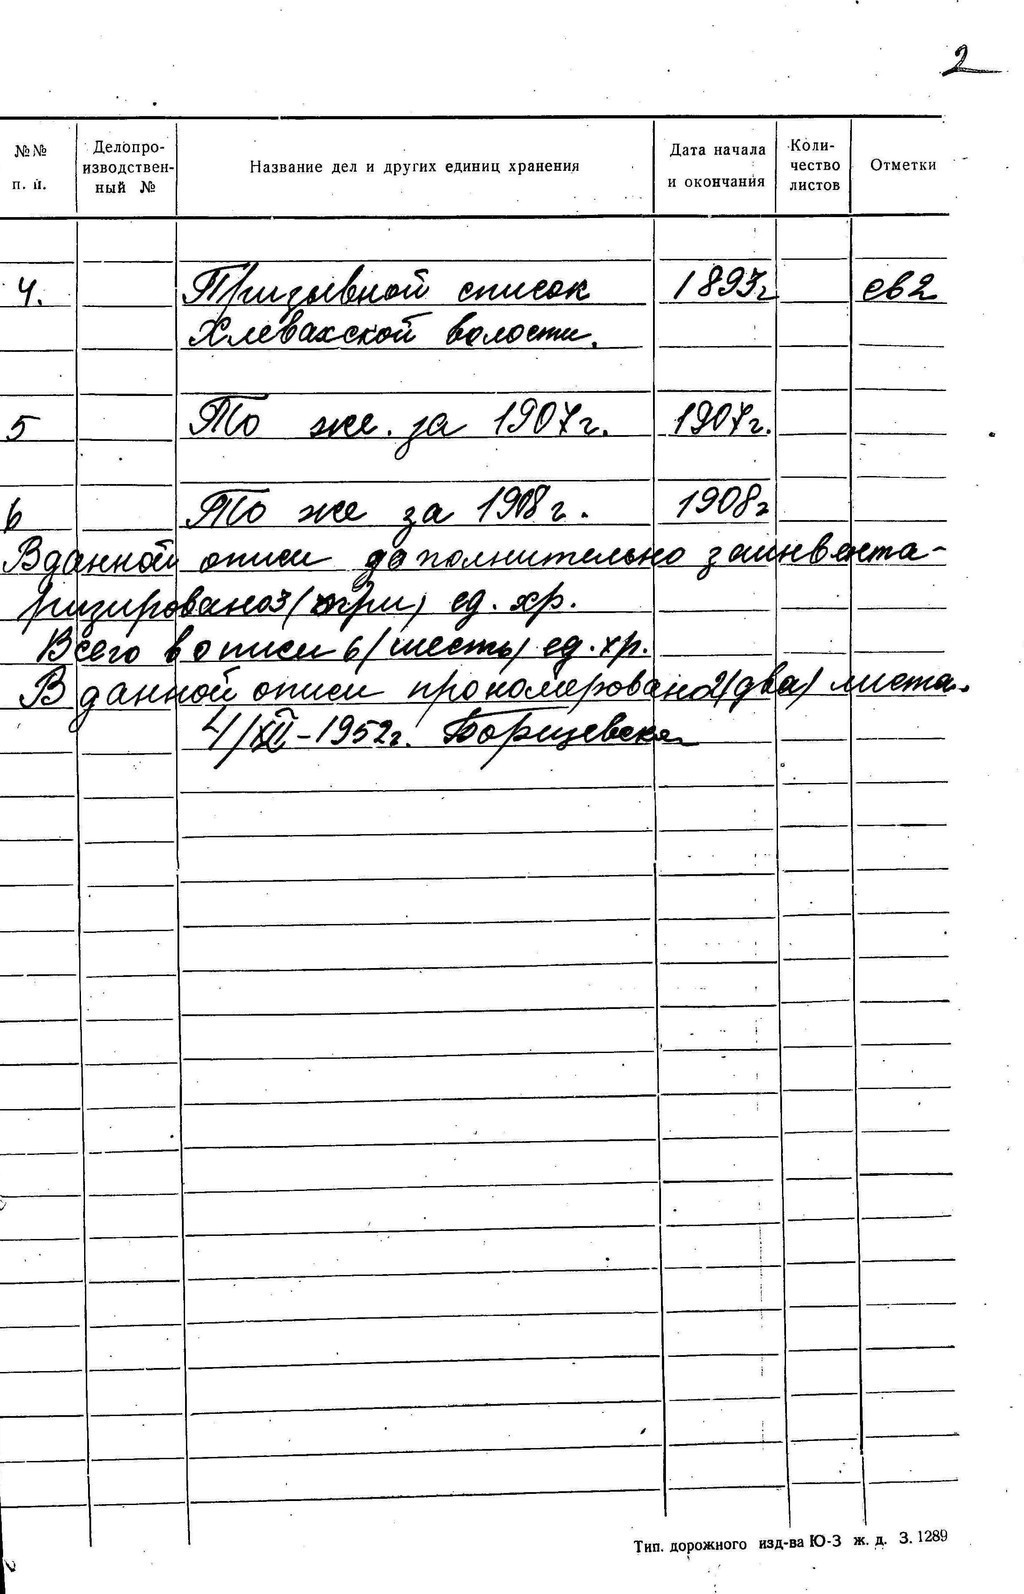 2
№№ п. п. Делопроизводствен-ный № Название дел и других единиц хранения Дата начала и окончания Коли-чество листов Отметки
4. Призывной список 1893г
Хлевахской волости.
5 То же за 1907г. 1907г.
6 То же за 1908г. 1908г
В данной описи дополнительно заинвента-
ризировано 3 (три) ед. хр.
Всего в описи 6 (шесть) ед. хр.
В данной описи прономеровано 2 (два) листа.
4/XII-1952г. Борщевская
Тип. дорожного изд-ва Ю-З ж. д. З. 1289